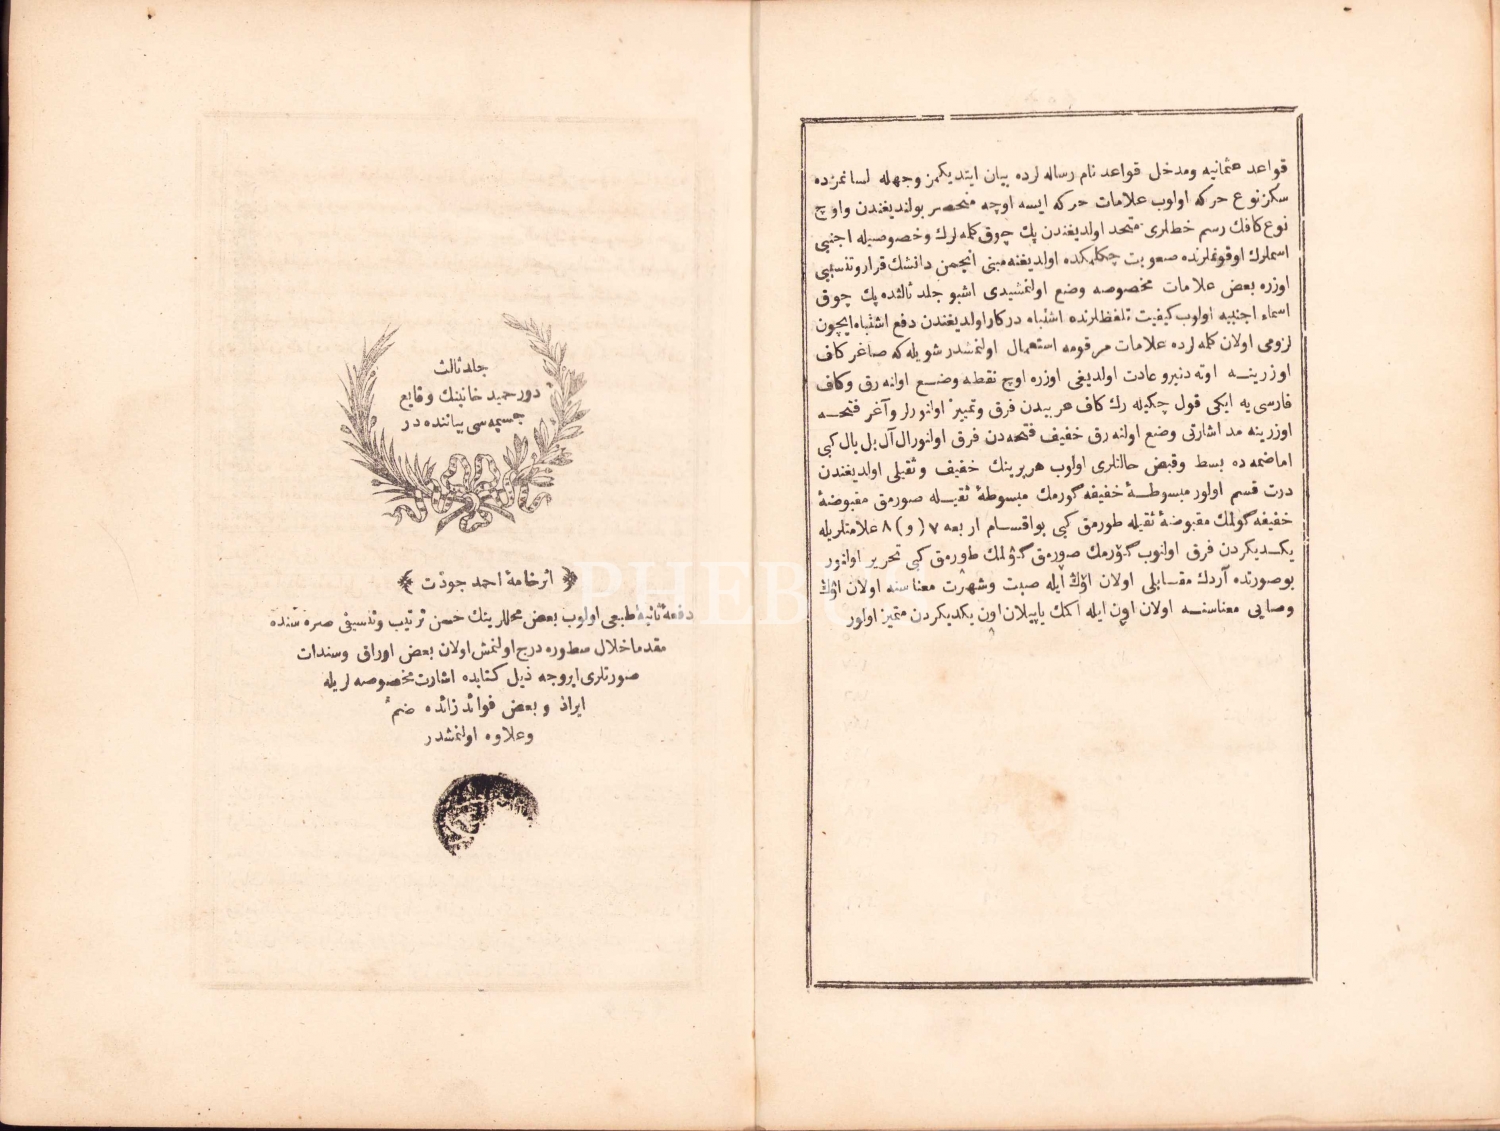 قواعد عثمانیه ومدخل قواعد نام رساله لرده بیان ایتدیکمز وجهله لسانمزده
سکز نوع حرکه اولوب علامات حرکه ایسه اوچه منحصر بولندیغندن واوچ
نوع کافك رسم خطلری متحد اولدیغندن پك چوق کله لرك وخصوصیله اجنبی
اسملرك اوقونملرنده صعوبت چکلمکده اولدیغنه مبنی انجمن دانشك قرار وتنسیبی
اوزره بعض علامات مخصوصه وضع اولنمشیدی اشبو جلد ثالثده پك چوق
اسماء اجنبیه اولوب کیفیت تلفظلرنده اشتباه درکار اولدیغندن دفع اشتباه ایچون
لزومی اولان کله لرده علامات مرقومه استعمال اولنمشدر شویله که صاغر کاف
اوزرینه اوته دنبرو عادت اولدیغی اوزره اوچ نقطه وضع اولنه رق وکاف
فارسی یه ایکی قول چکیله رك کاف عربیدن فرق وتمییز اولنورلر وآغر فتحه
اوزرینه مد اشارتی وضع اولنه رق خفیف فتحه دن فرق اولنور ال آل بل بال کبی
اما ضمه ده بسط وقبض حالتلری اولوب هر برینك خفیف وثقیلی اولدیغندن
درت قسم اولور مبسوطهٔ خفیفه گورمك مبسوطهٔ ثقیله صورمق مقبوضهٔ
خفیفه گولمك مقبوضهٔ ثقیله طورمق کبی بو اقسام اربعه ٧ (و) ٨ علامتلریله
یکدیکردن فرق اولنوب گورمك صورمق گولمك طورمق کبی تحریر اولنور
بو صورتده آردك مقابلی اولان اوڭ ایله صیت وشهرت معناسنه اولان اوڭ
وصایی معناسنه اولان اون ایله اکمك یاپیلان اون یکدیکردن متمیز اولور
جلد ثالث
دور حمید خانینك وقایع
جسیمه سی بیاننده در
﴿ اثر خامهٔ احمد جودت ﴾
دفعهٔ ثانیهٔ طبعی اولوب بعض محللرینك حسن ترتیب وتنسیقی صره سنده
مقدما خلال سطوره درج اولنمش اولان بعض اوراق وسندات
صورتلری بروجه ذیل کتابده اشارت مخصوصه لریله
ایراد و بعض فوائد زائده ضم
وعلاوه اولنمشدر
PHEB